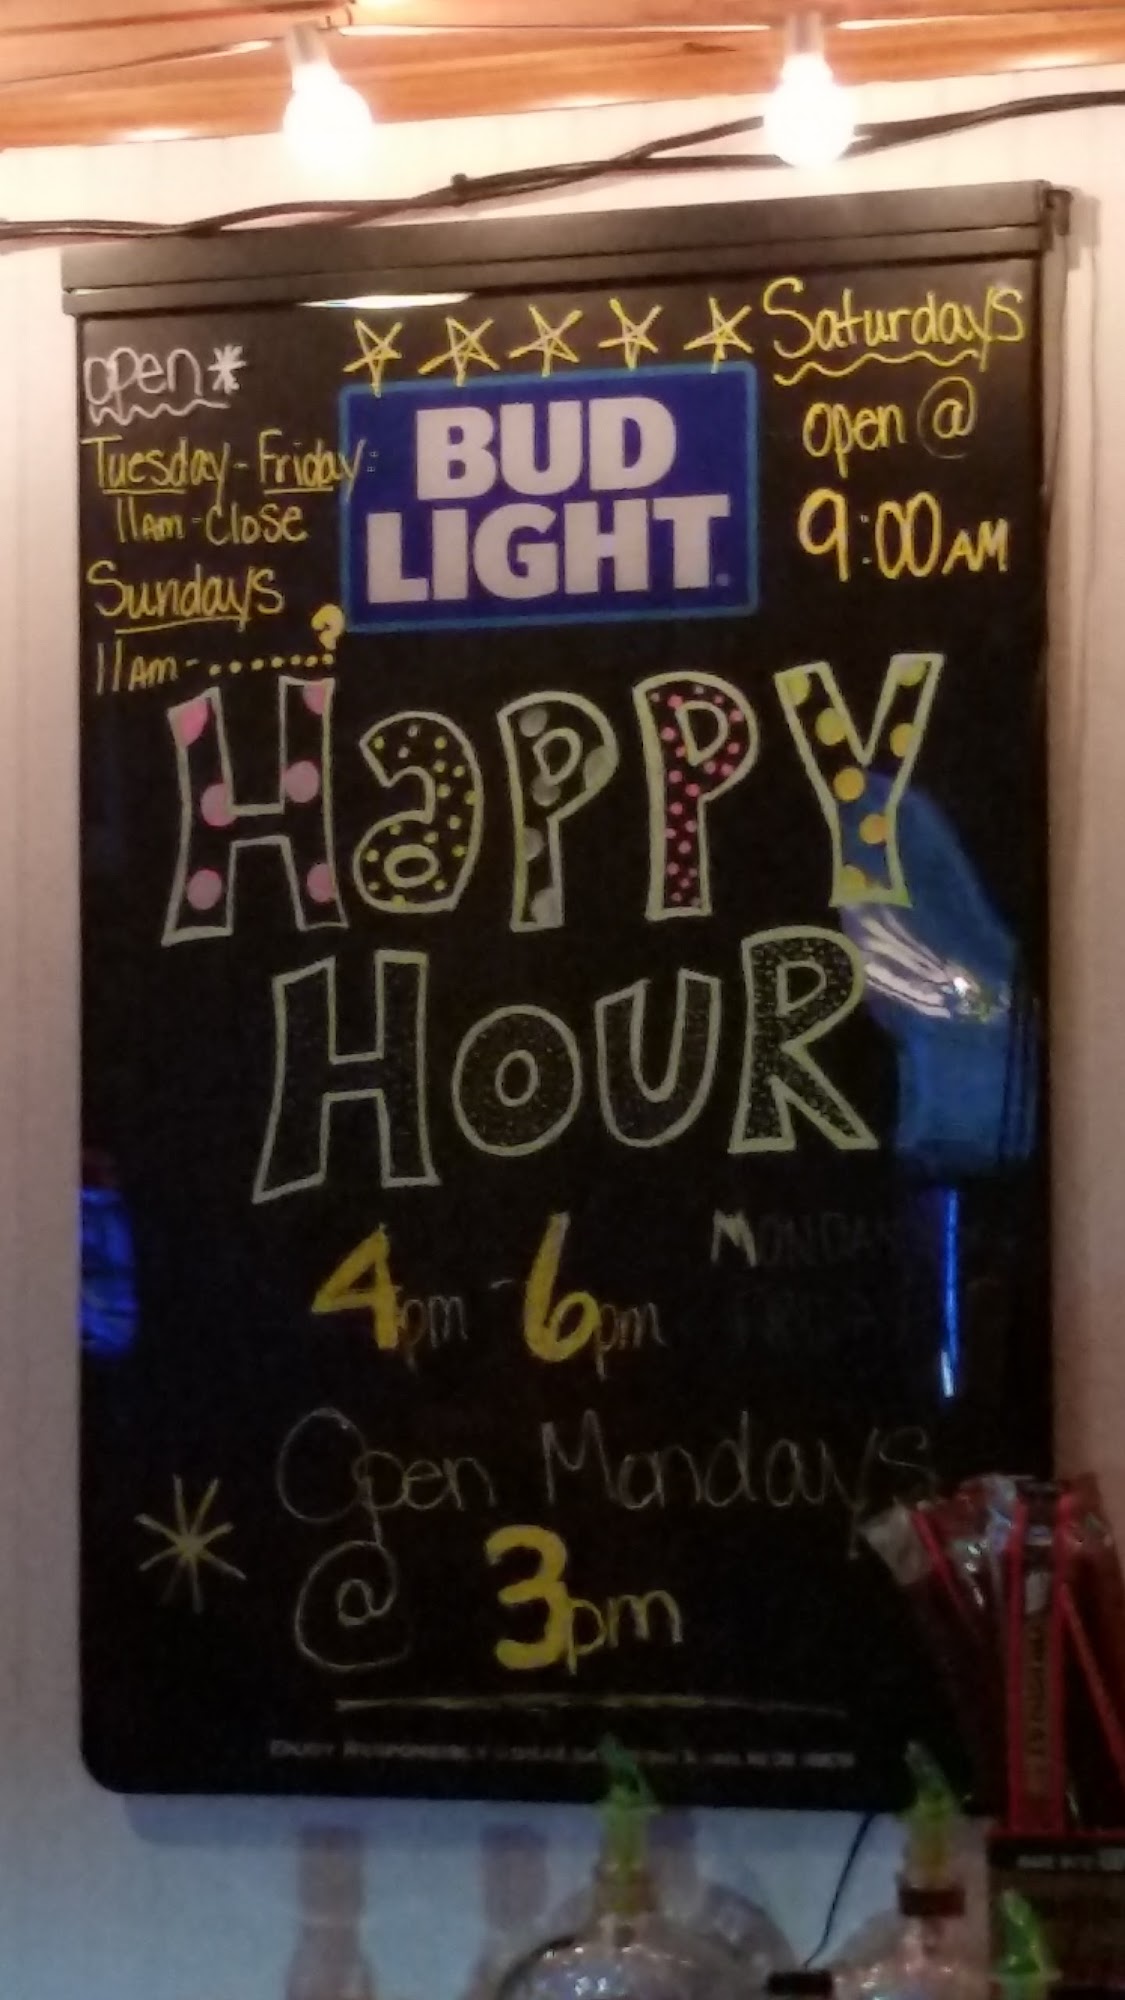 open*
Tuesday - Friday:
11AM - Close
Sundays
11AM - .......?
BUD
LIGHT
Saturdays
open @
9:00 AM
HaPPY
HOUR
4pm - 6pm
MONDAY
Open Mondays
@ 3pm
ENJOY RESPONSIBLY